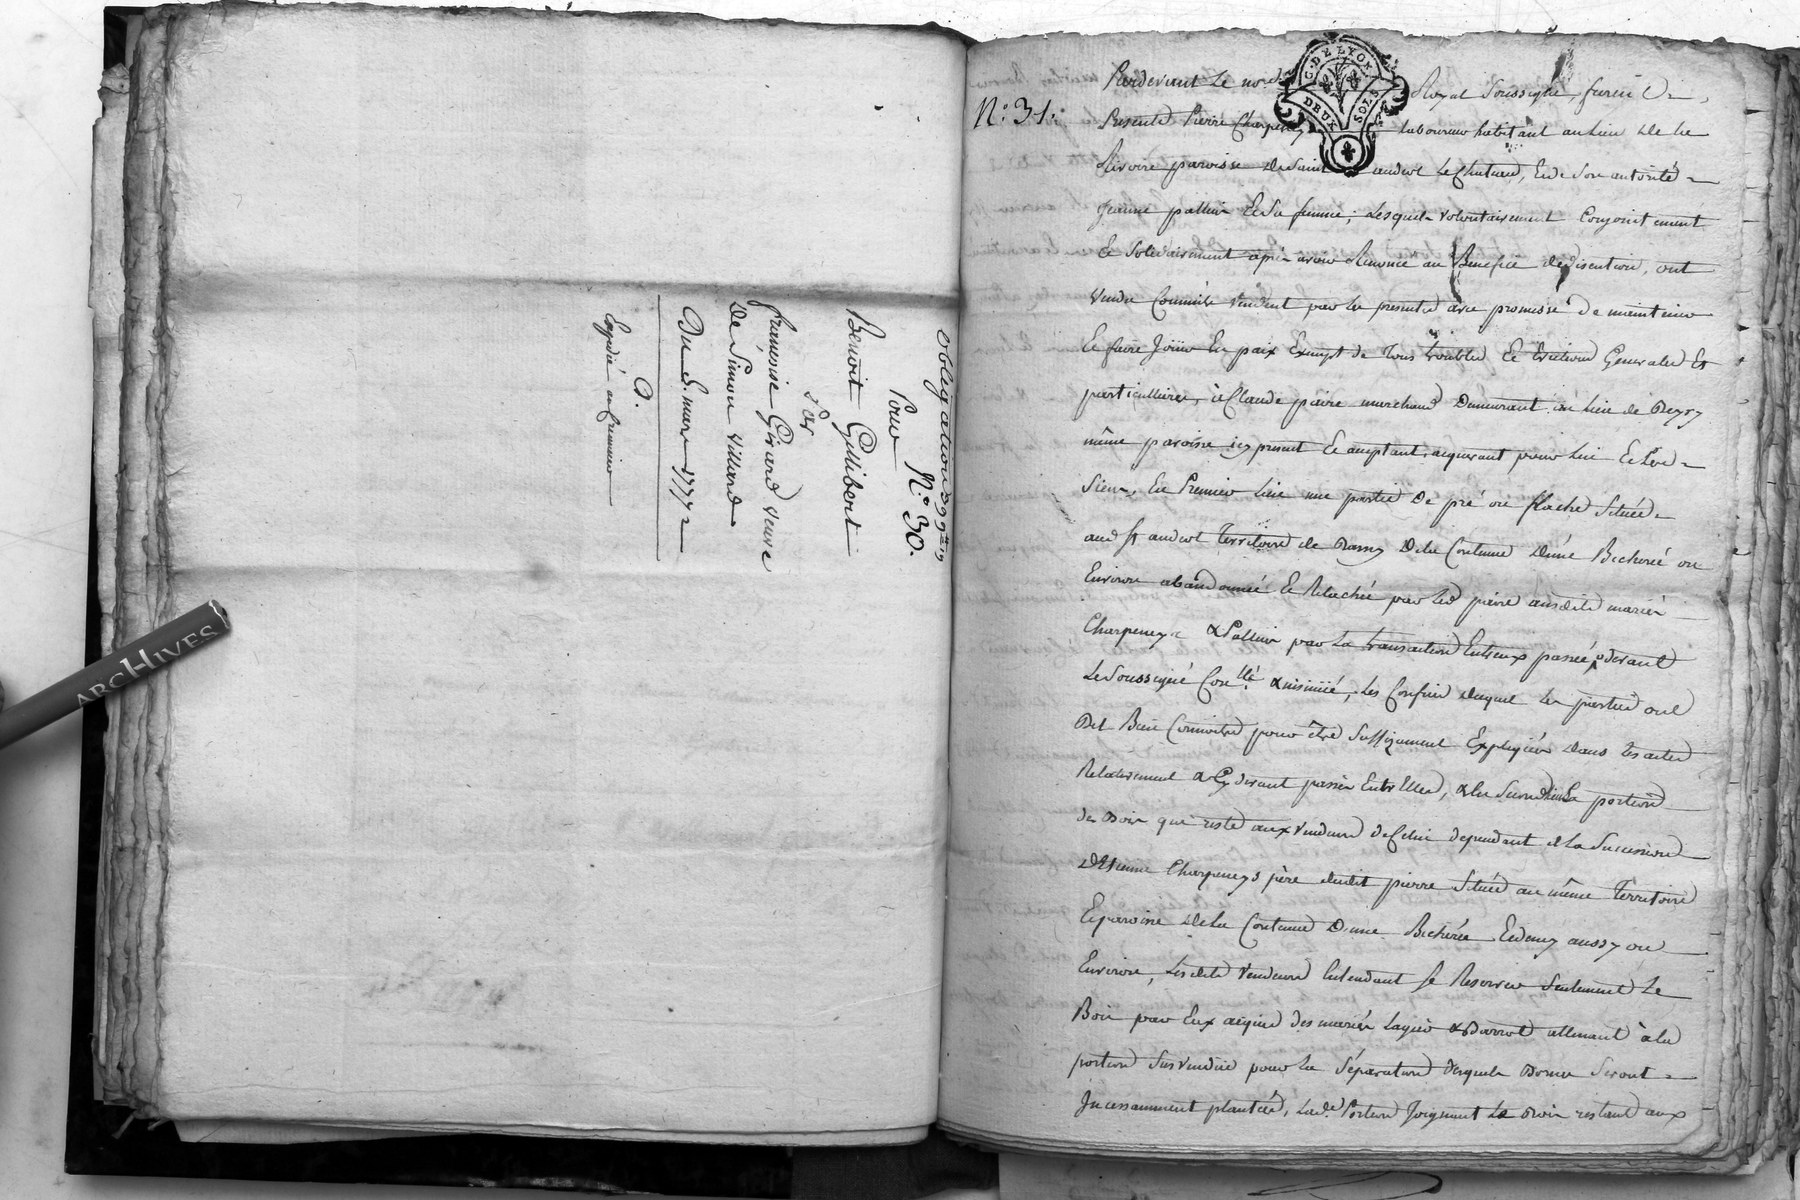 Obligation 399ᵗᵗ 19
N.° 30.
Pour
Benoit Gillibert
Par
françoise Girard veuve
De Simon Villard
Du 8. mars 1772
D.
Expedié au Creancier
ARCHIVES
N.° 31.
G. DE LYON
DEUX SOLS
Pardevant Le no.re Royal Soussigné, furent
Presents Pierre Charpenay Laboureur habitant au Lieu de la
Rivoire paroisse de Saint andeol Le Chateau, Et de Son autorité
Jeanne pallein Sa femme, Lesquels volontairement Conjointement
Et Solidairement après avoir Renoncé au Benefice de discution, ont
vendu Comm'ils vendent par les presentes avec promesse de maintenir
Et faire Joüir En paix Exempt de Tous troubles Et Evictions Generales Et
particullieres, à Claude paire marchand Demeurant au Lieu de
même paroisse icy present Et acceptant, acquerant pour Lui Et Les
Siens, En Premier Lieu une partie De pré ou flache Située
aud St andeol Territoire de De la Contenue D'une Bicherée ou
Environ abandonnée Et Relachée par Led paire ausdits mariés
Charpenay & Pallein par La transaction Entreux passée pdevant
Le Soussigné Con.lé & insinüé, Les Confins duquel Les parties ont
Dit Bien Connoitre pour être Suffizament Expliqués dans les actes
Relativement a Cy devant passés Entr'Elles, & En Second Lieu La portion
de Bois qui reste aux vendeurs de Celui dependant de la Succession
D'Etienne Charpenay père dudit pierre Située au même Territoire
Et paroisse De la Contenue D'une Bicherée Et demy aussy ou
Environ, Lesdits Vendeurs Entendant Se Reserver Seulement Le
Bois par Eux acquis des mariés & Barriot attenant à la
portion Susvendüe pour la Séparation desquels Bornes Seront
Incessamment plantées, Lad.e Portion Joignant Le Bois restant aux